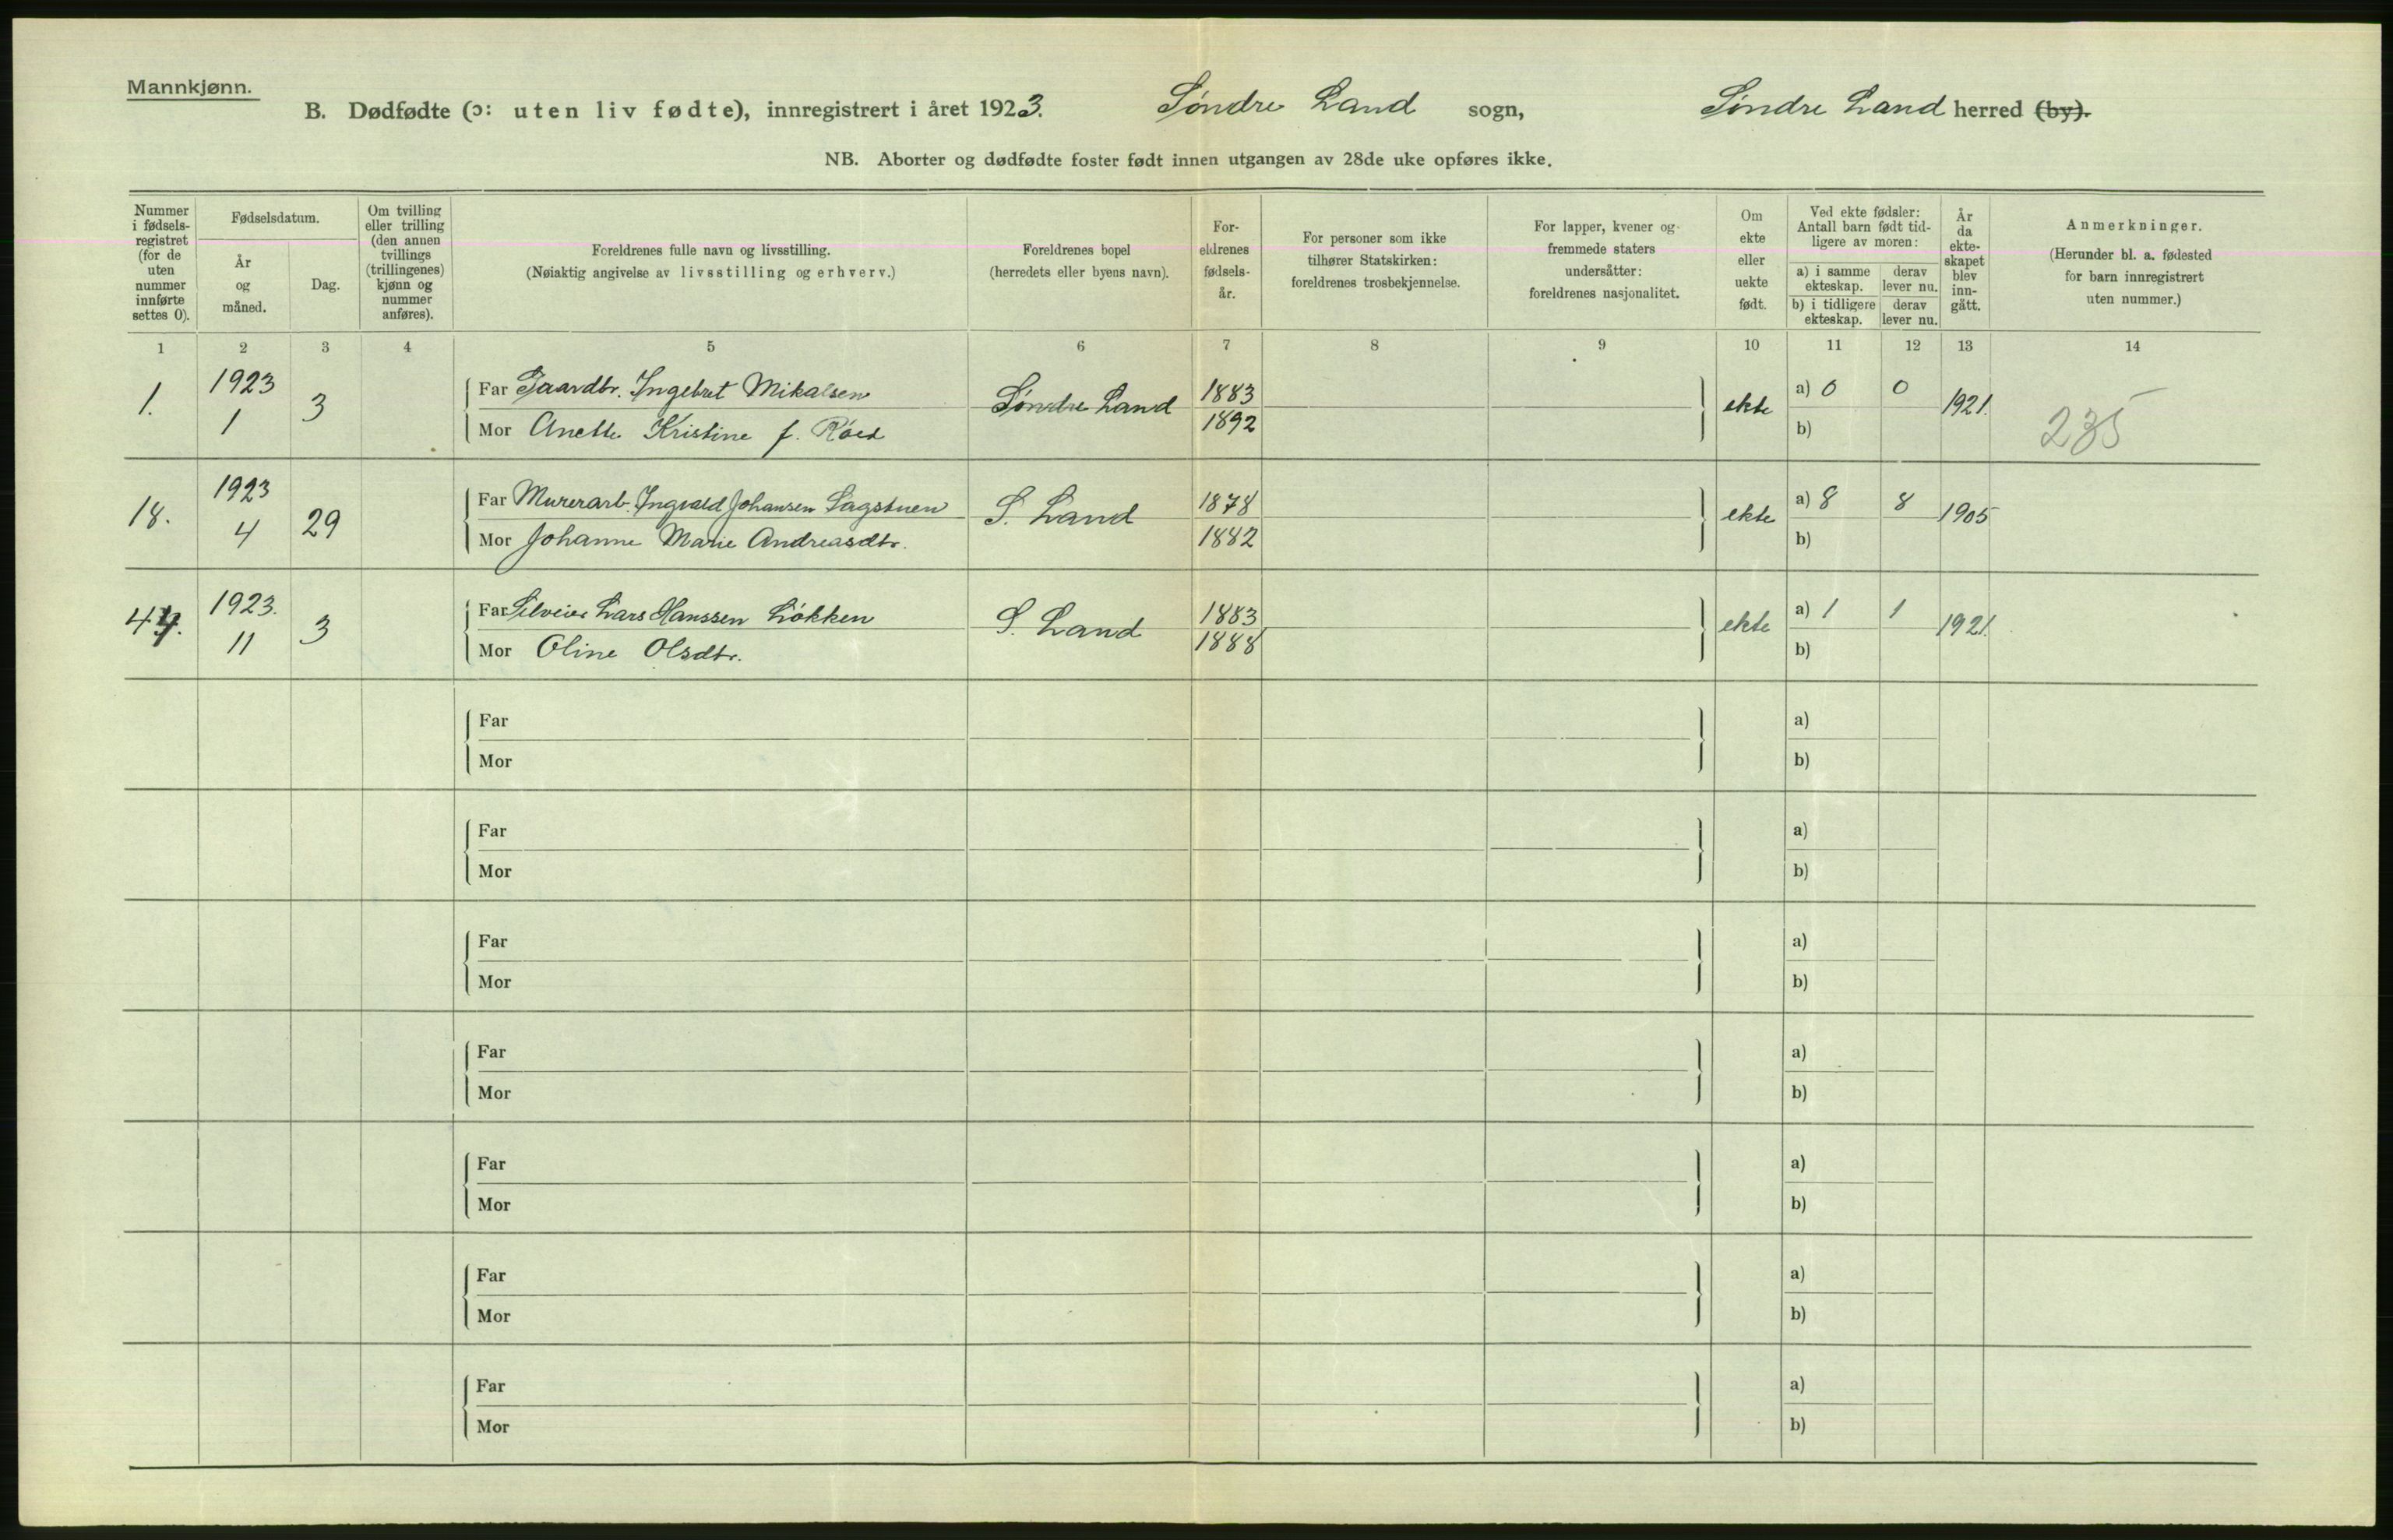 Mannkjønn.
B. Dødfødte (ɔ: uten liv fødte), innregistrert i året 1923. Søndre Land sogn, Søndre Land herred (by).
NB. Aborter og dødfødte foster født innen utgangen av 28de uke opføres ikke.
Nummer i fødsels-registret (for de uten nummer innførte settes 0).
Fødselsdatum.
År og måned.
Dag.
Om tvilling eller trilling (den annen tvillings (trillingenes) kjønn og nummer anføres).
Foreldrenes fulle navn og livsstilling.
(Nøiaktig angivelse av livsstilling og erhverv.)
Foreldrenes bopel
(herredets eller byens navn).
For-eldrenes fødsels-år.
For personer som ikke tilhører Statskirken: foreldrenes trosbekjennelse.
For lapper, kvener og fremmede staters undersåtter: foreldrenes nasjonalitet.
Om ekte eller uekte født.
Ved ekte fødsler: Antall barn født tid-ligere av moren:
a) i samme ekteskap. derav lever nu.
b) i tidligere ekteskap. derav lever nu.
År da ekte-skapet blev inn-gått.
Anmerkninger.
(Herunder bl. a. fødested for barn innregistrert uten nummer.)
1 2 3 4 5 6 7 8 9 10 11 12 13 14
1. 1923 1 3 Far Gaardbr. Ingebret Mikalsen Søndre Land 1883 ekte a) 0 0 1921. 235
Mor Anette Kristine f. Röed 1892 b)
18. 1923 4 29 Far Murerarb. Ingvald Johansen Sagstuen S. Land 1878 ekte a) 8 8 1905
Mor Johanne Marie Andreasdtr. 1882 b)
44. 1923. 11 3 Far Lars Hanssen Løkken S. Land 1883 ekte a) 1 1 1921.
Mor Oline Olsdtr. 1888 b)
Far a)
Mor b)
Far a)
Mor b)
Far a)
Mor b)
Far a)
Mor b)
Far a)
Mor b)
Far a)
Mor b)
Far a)
Mor b)